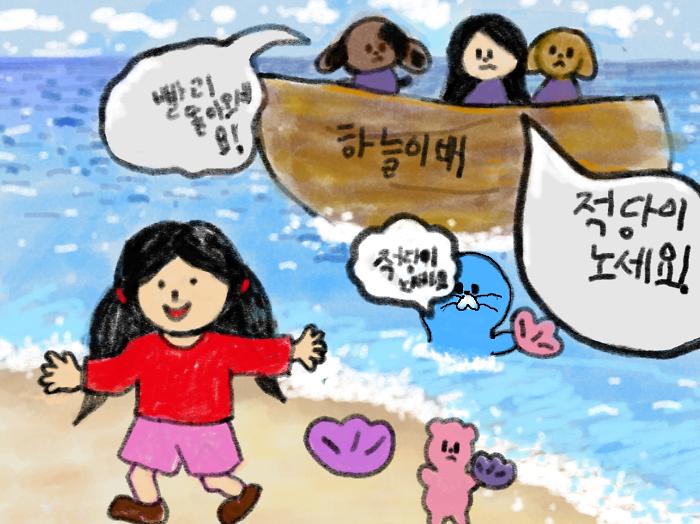 빨리
돌아와세
요!
하늘이배
적당이
노세요!
적당이
노세요